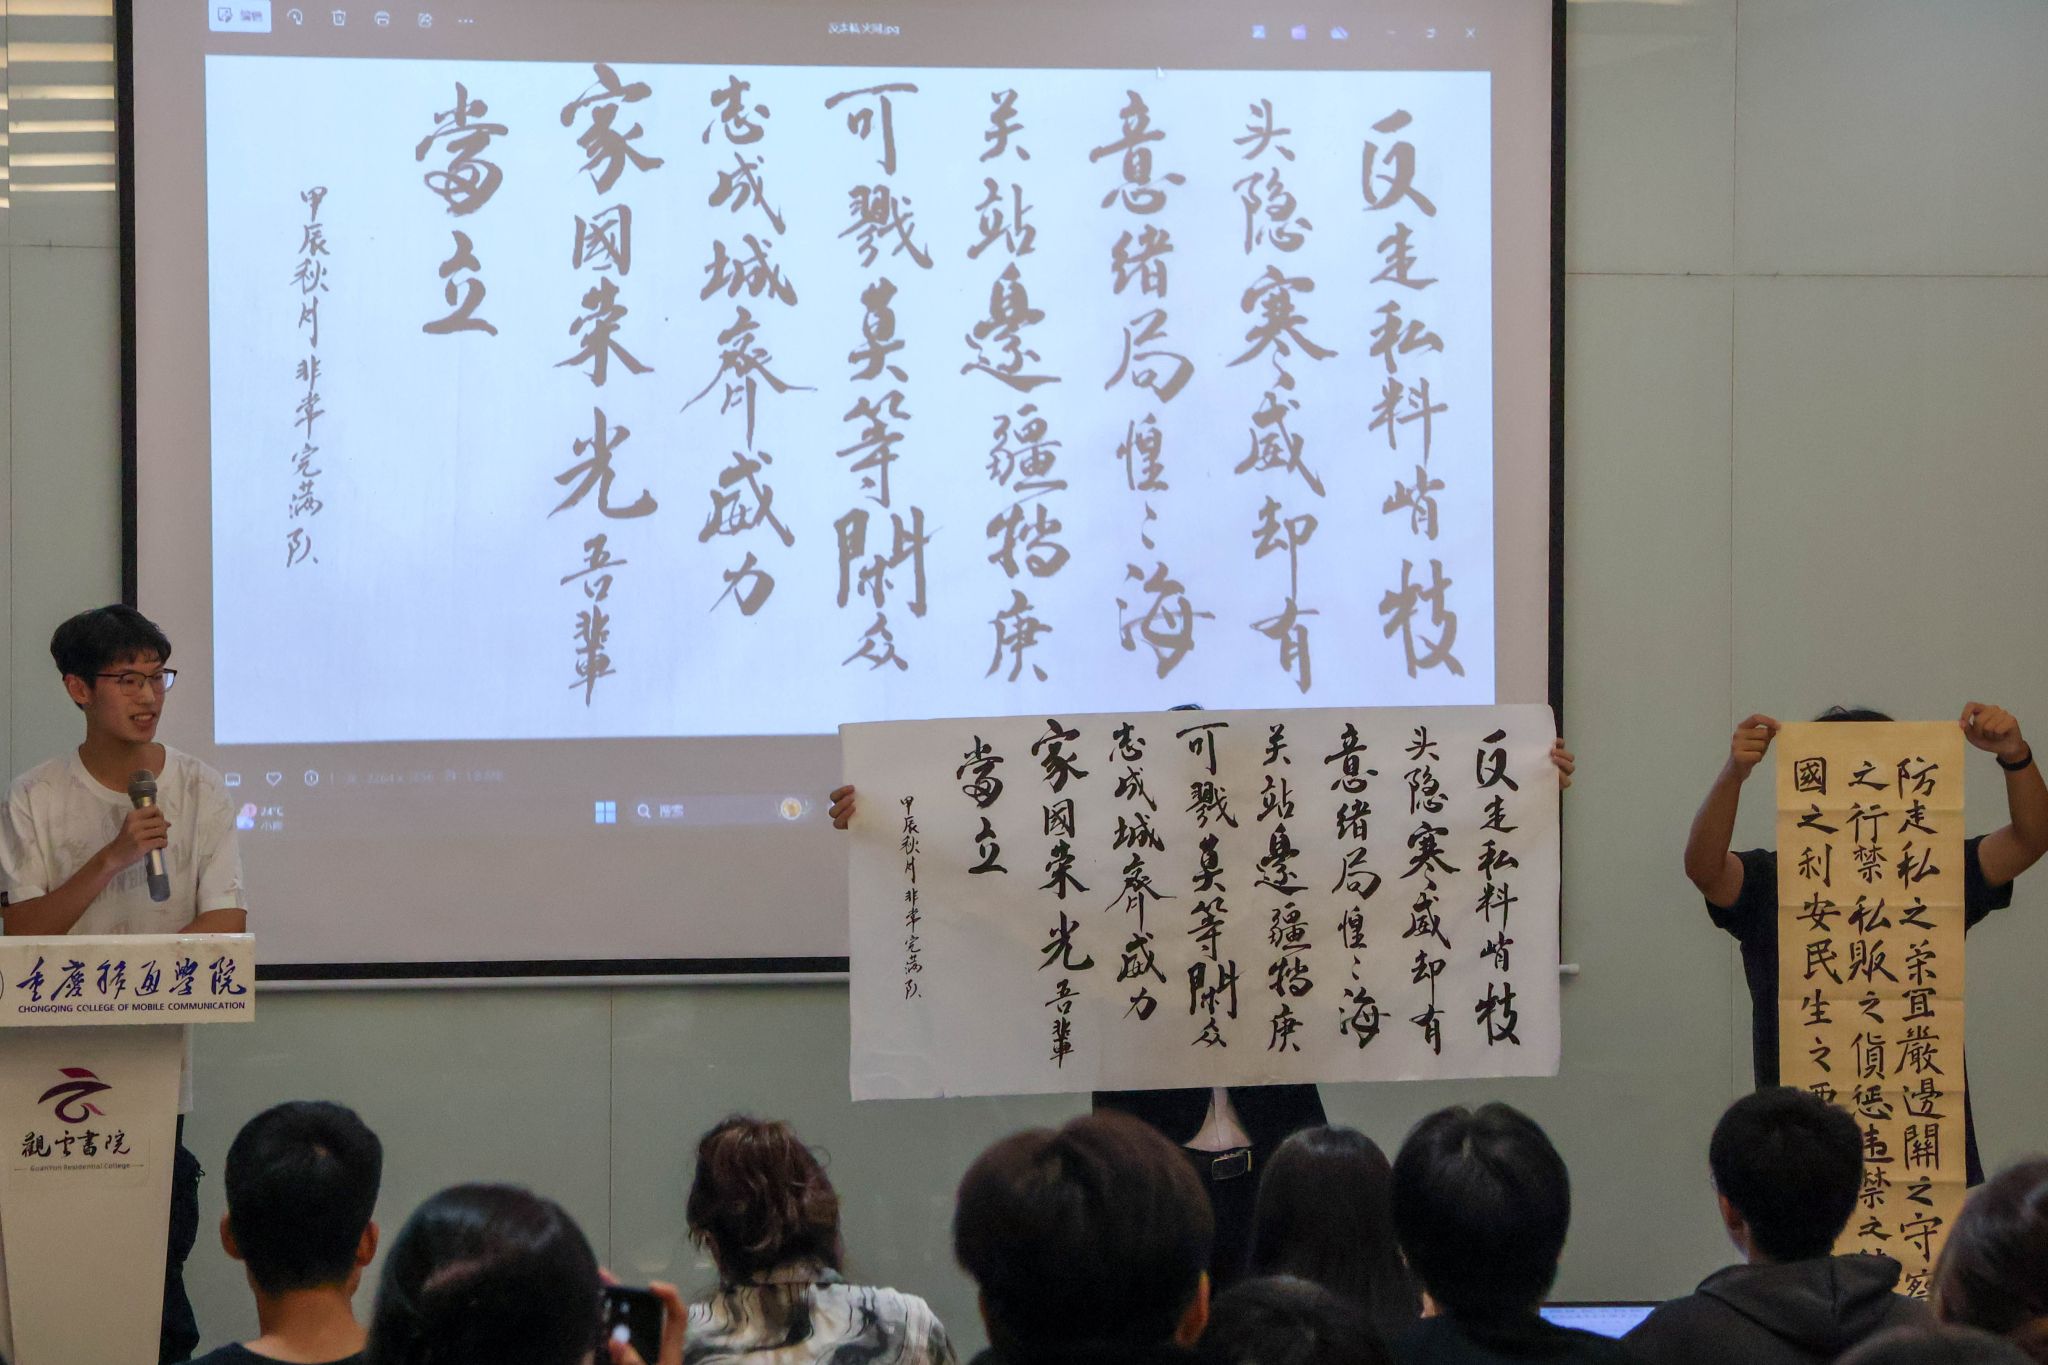 编辑
反走私料峭枝
头隐寒威却有
意绪局惶〻海
关站邊疆庚
可戮莫等閑众
志成城齊威力
家國荣光吾輩
當立
甲辰秋月非常完满队
24°C
搜索
反走私料峭枝
头隐寒威却有
意绪局惶〻海
关站邊疆庚
可戮莫等閑众
志成城齊威力
家國荣光吾輩
當立
甲辰秋月非常完满队
防走私之策宜嚴邊關之守察
之行禁私販之貨惩违禁之
國之利安民生之
重慶移通學院
CHONGQING COLLEGE OF MOBILE COMMUNICATION
觀雲書院
GuanYun Residential College